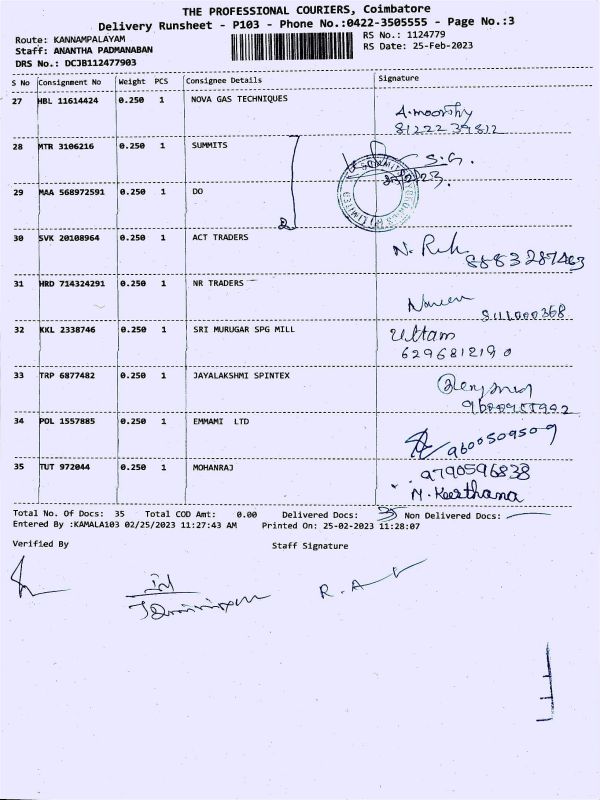 THE PROFESSIONAL COURIERS, Coimbatore
Delivery Runsheet - P103 - Phone No.:0422-3505555 - Page No.:3
Route: KANNAMPALAYAM
RS No.: 1124779
Staff: ANANTHA PADMANABAN
RS Date: 25-Feb-2023
DRS No.: DCJB112477903
S No Consignment No Weight PCS Consignee Details Signature
27 HBL 11614424 0.250 1 NOVA GAS TECHNIQUES
A.moorthy
81222 39812
28 MTR 3106216 0.250 1 SUMMITS
S.G.
29 MAA 568972591 0.250 1 DO
2
30 SVK 20108964 0.250 1 ACT TRADERS
8883287463
31 HRD 714324291 0.250 1 NR TRADERS
Naveen
32 KKL 2338746 0.250 1 SRI MURUGAR SPG MILL
Uttam
6296812190
33 TRP 6877482 0.250 1 JAYALAKSHMI SPINTEX
34 POL 1557885 0.250 1 EMMAMI LTD
9600509509
35 TUT 972044 0.250 1 MOHANRAJ
9790596838
M. Keerthana
Total No. Of Docs: 35 Total COD Amt: 0.00 Delivered Docs: 35 Non Delivered Docs:
Entered By :KAMALA103 02/25/2023 11:27:43 AM Printed On: 25-02-2023 11:28:07
Verified By Staff Signature
R. A